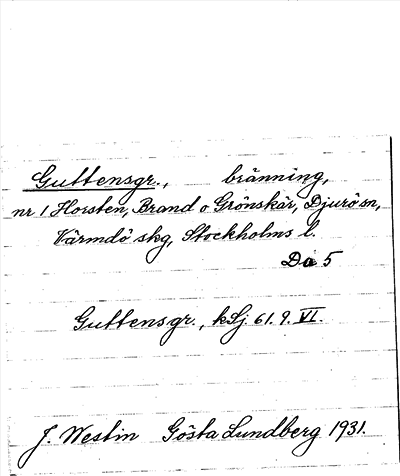 Guttensgr., bränning,
nr 1 Horsten, Brand o Grönskär, Djurö sn,
Värmdö skg, Stockholms l.
Da 5
Guttensgr., kSj. 61. 9. VI.
J. Westin Gösta Lundberg 1931.